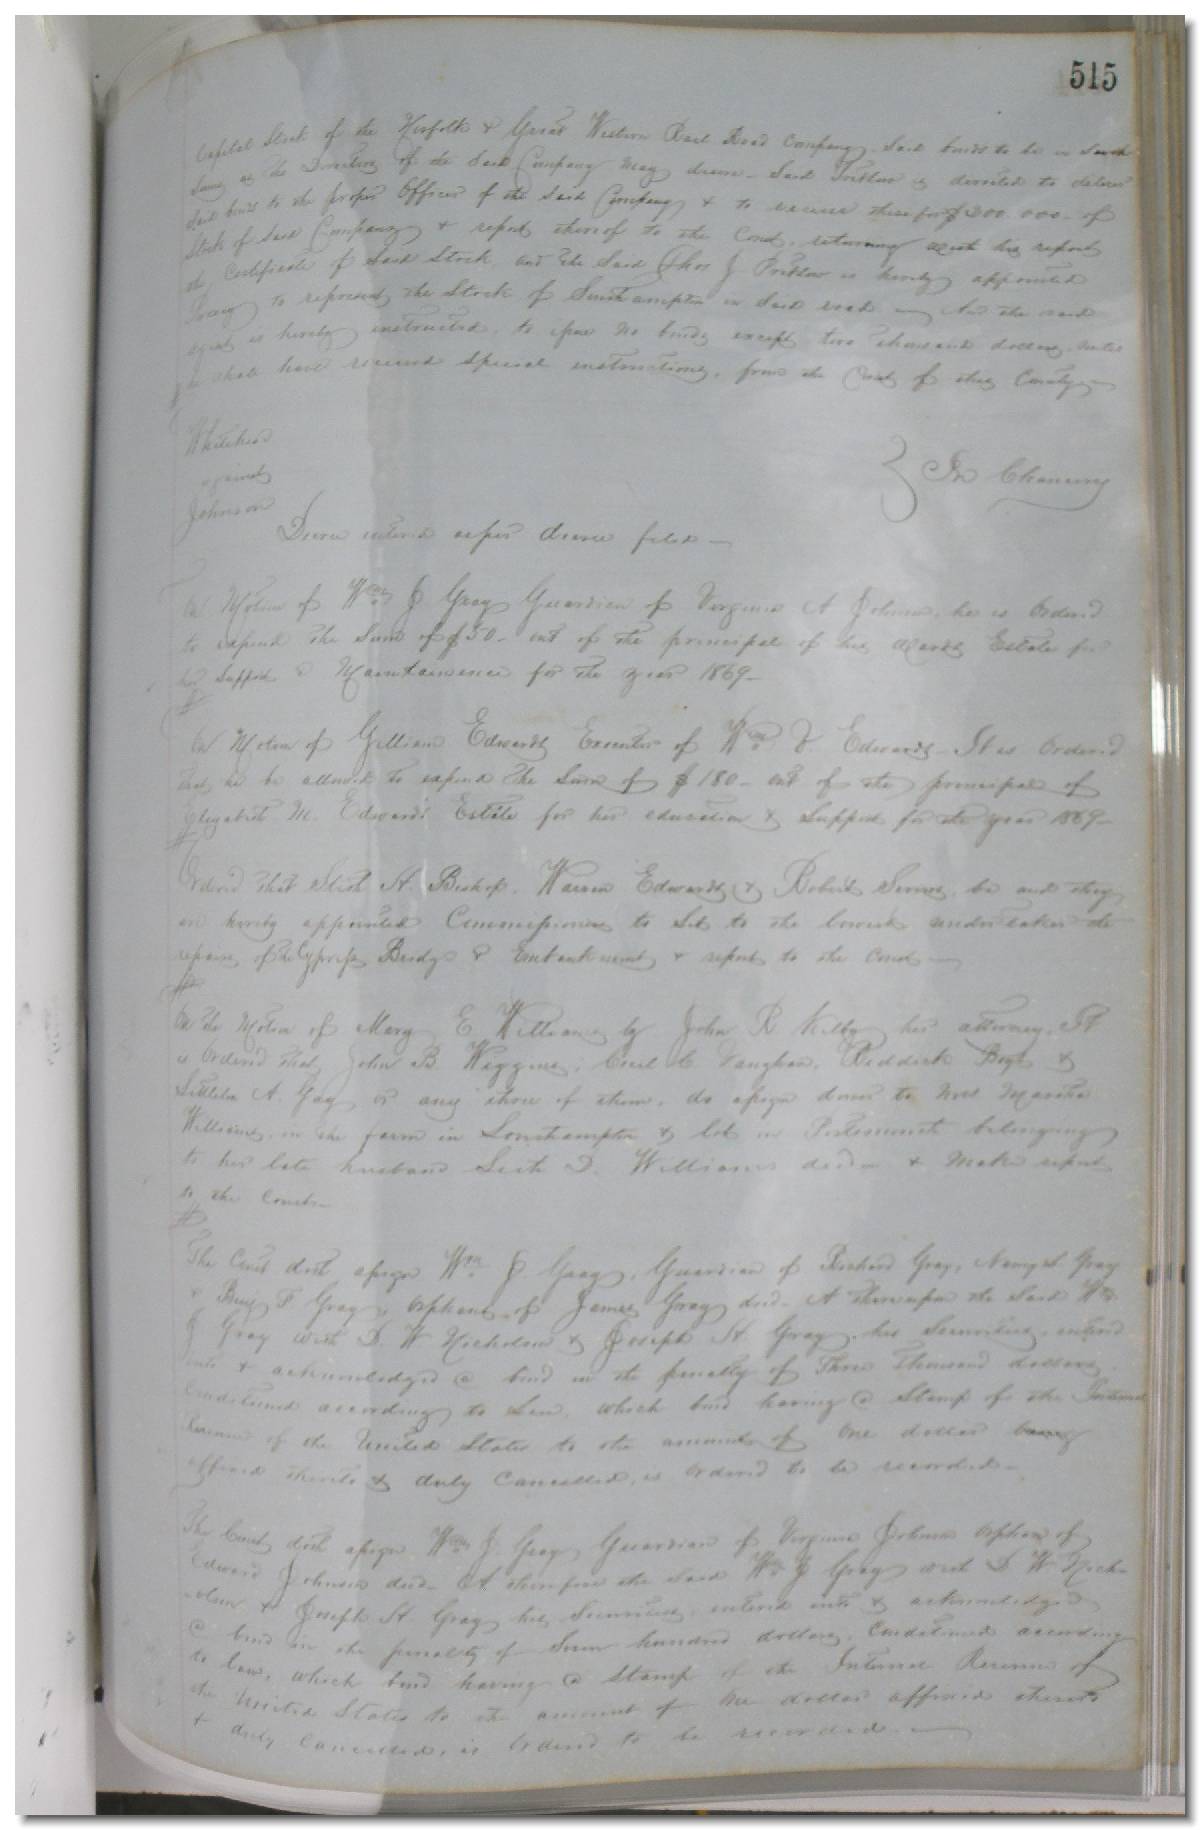 515
Capital Stock of the Norfolk & Great Western Rail Road Company. Said bonds to be in such
sums as the Directors of the said Company may deem - Said Pretlow is directed to deliver
said bonds to the proper Officer of the said Company & to receive therefor $200.000 - of
Stock of said Company & report thereof to the Court, returning with his report
the Certificate of said Stock, and the said Thos J Pretlow is hereby appointed
Proxy to represent the Stock of Southampton in said road - And the said
agent is hereby instructed, to issue no bonds except two thousand dollars, until
he shall have received special instructions, from the Court of this County -
Whitehead
against
Johnson
} In Chancery
Decree entered as per decree filed -
On Motion of Wm J Gray Guardian of Virginia A Johnson, he is Ordered
to expend the Sum of $50 - out of the principal of his Wards Estate for
her Support & Maintainence for the year 1869 -
On Motion of Gilliam Edwards Executor of Wm Edwards - It is Ordered
that he be allowed to expend the Sum of $180 - out of the principal of
Elizabeth M. Edwards Estate for her education & Support for the year 1869 -
Ordered that A. Bishop, Warren Edwards & Robert be and they
are hereby appointed Commissioners to let to the lowest undertaker the
repairs of the Cypress Bridge & Embankment & report to the Court -
On the Motion of Mary E Williams by John R Kilby her attorney, It
is Ordered that John B. Wiggins, Cecil C Vaughan, Riddick &
Littleton A. Gay or any three of them, do assign dower to Mrs Martha
Williams, in the farm in Southampton & lot in Portsmouth belonging
to her late husband D. Williams decd - & make report
to the Court -
The Court doth assign Wm J Gray, Guardian of Richard Gray, Nancy S. Gray
& Benj F Gray, orphans of James Gray decd - & thereupon the said Wm
J Gray with D. W Nicholson & Joseph H. Gray his Securities, entered
into & acknowledged @ bond in the penalty of Three thousand dollars
Conditioned according to Law, which bond having @ Stamp of the Internal
Revenue of the United States to the amount of One dollar being
affixed thereto & duly Cancelled, is Ordered to be recorded -
The Court doth assign Wm J. Gray Guardian of Virginia Johnson orphan of
Edward Johnson decd - & therefore the said Wm J Gray with D W Nich-
-olson & Joseph H. Gray his Securities, entered into & acknowledged
@ bond in the penalty of hundred dollars, Conditioned according
to law, which bond having @ Stamp of the Internal Revenue of
the United States to the amount of One dollar affixed thereto
& duly Cancelled, is Ordered to be recorded -